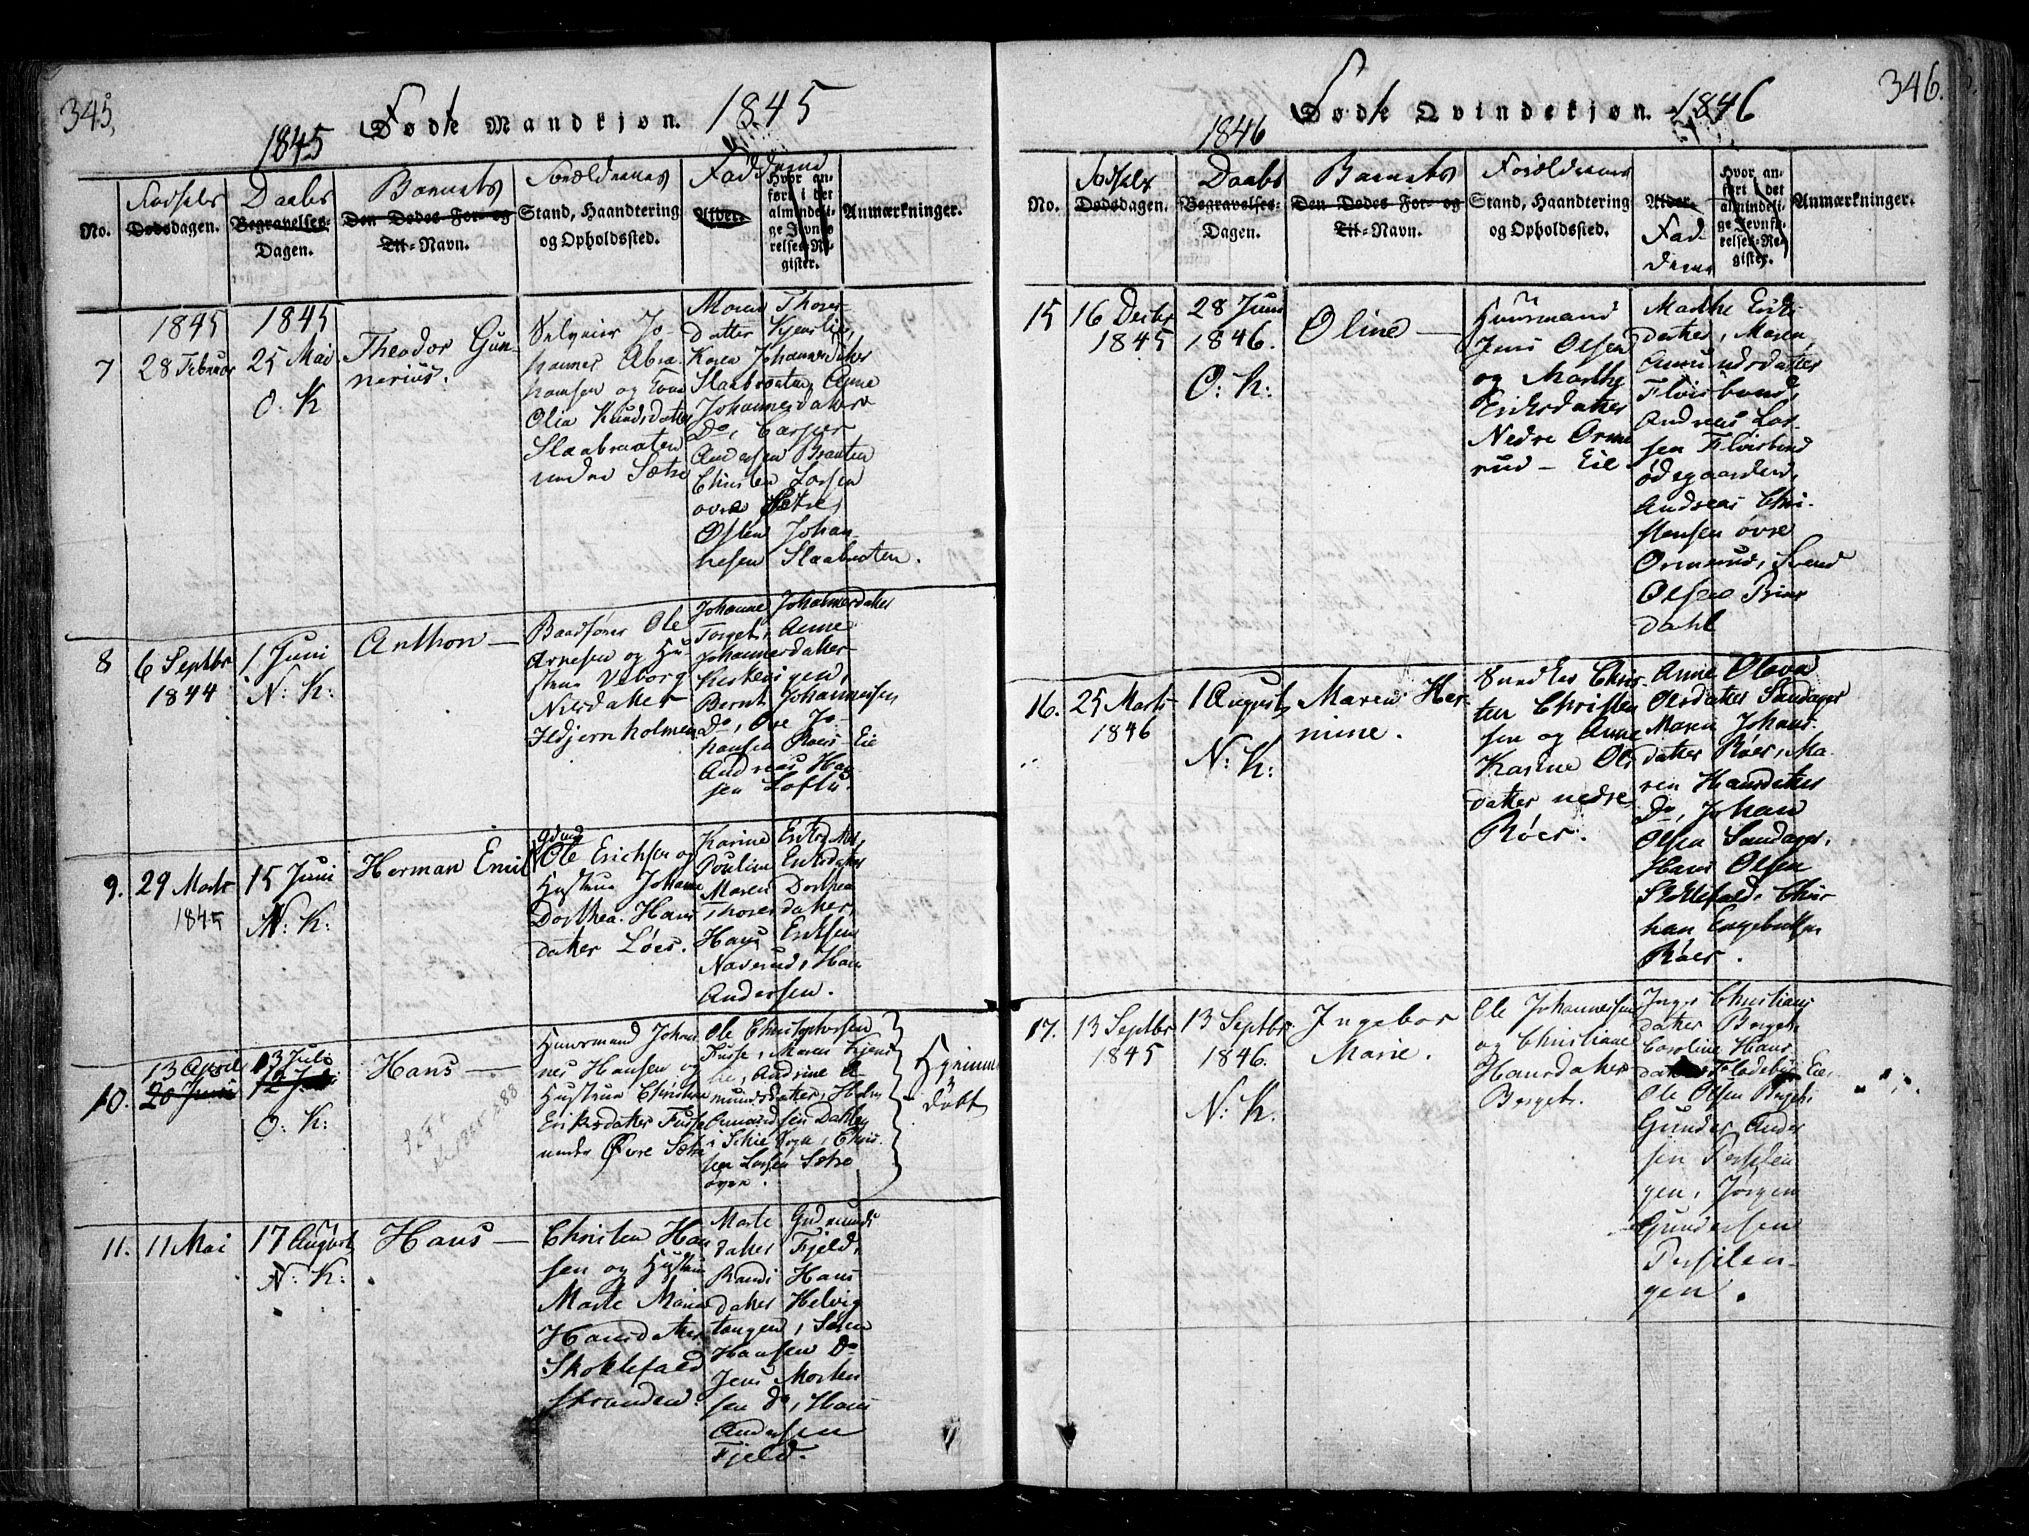 345,
Fødte Mandkjøn. 1845
1845
No.
Fødsels
Dødsdagen.
Daabs
Begravelses-
Dagen.
Barnets
Den Dødes For- og
Til-Navn.
Forældrenes
Stand, Haandtering
og Opholdssted.
Faddere
Alder.
Hvor an-
ført i det
almindeli-
ge Jevnfø-
relses-Re-
gister.
Anmærkninger.
7
1845
28 Februar
1845
25 Mai
O: K
Theodor Gun-
nerius.
Selveier Jo
hannes Abra
hamsen og Kone
Olia Knudsdatter
Slaabraaten
under Sætre
Maren Thores-
datter Kjenlie,
Karen Johannesdatter
Slaabraaten, Anne
Johannesdatter
Do, Casper
Andersen Braaten
Christen Larsen
øvre Sætre,
Osten Johan-
nesen Slaabraten.
8
6 Septbr
1844
1 Juni
N: K:
Anthon —
Baadfører Ole
Arnesen og Hu
strue Valborg
Nielsdatter
Ildjernholmen
Johanne Johannesdatter
Torget, Anne
Johannesdatter
Bernt Johannesen
Do, Ove Jo-
hansen Roes-Eie
Andreas Han
sen Loftu.
9.
29 Marts
1845
15 Juni
N: K:
Herman Emil
Gdmd
Ole Erichsen og
Hustrue Johanne
Dorthea Hans
datter Løes.
Karine Eriksdatter,
Pouline Eriksdatter
Maren Dorthea
Thoresdatter,
Hans Eriksen
Naverud, Han
Andersen.
10.
13 April
20 Juni
13 Juli
12 Juli
O: K:
Hans —
Huusmand Johan
nes Hansen og
Hustrue Christine
Eriksdatter Fusse
under Øvre Sætre
Ole Christophersen
Fusse, Maren Kjens
lie, Andrine A-
mundsdatter, Hans
Amundsen Dahlen
i Skie Sogn, Chris-
ten Larsen Sætre
øvre.
Hjemme
døbt
11.
11 Mai
17 August
N: K:
Hans —
Christen Han
sen og Hustrue
Marte Marie
Hansdatter
Skoklefald
stranden.
Marte Gudmunds
datter Fjeld,
Randi Hans
datter Helvig
tangen, Søren
Hansen Do
Jens Morten
sen Do, Hans
Andersen
Fjeld.
346.
Fødte Qvindekjøn. 1846
1846
No.
Fødsels
Dødsdagen.
Daabs
Begravelses-
Dagen.
Barnets
Den Dødes For- og
Til-Navn.
Forældrenes
Stand, Haandtering
og Opholdssted.
Alder.
Fad
derne
Hvor an-
ført i det
almindeli-
ge Jevnfø-
relses-Re-
gister.
Anmærkninger.
15
16 Decbr
1845
28 Juni
1846.
O: K:
Oline —
Huusmand
Jens Olsen
og Marthe
Eriksdatter
Nedre Orme
rud — Eie
Marthe Eriks
datter, Maren
Amundsdatter
Floisbond,
Andreas Lar-
sen Floisbond
ødegaarden,
Andreas Chri-
stensen øvre
Ormerud, Svend
Olsen Trine
dahl
16.
25 Marts
1846
1 August
N: K:
Maren Her-
mine.
Snedker Chris-
ten Christen
sen og Anne
Karine Ols
datter nedre
Røer.
Anne Olava
Olsdatter Sandager
Maren Johans-
datter Røer, Ma-
ren Hansdatter
Do, Johan
Olsen Sandager,
Hans Olsen
Skoklefald, Chri-
stian Engebretsen
Røer.
17.
13 Septbr
1845
13 Septbr
1846.
N: K.
Ingebor
Marie.
Ole Johannesen
og Christiane
Hansdatter
Berget.
Inger Christians
datter Berget,
Caroline Hans
datter Fladeby-Eie
Ole Olsen Berget,
Gunder Ander
sen Tesilen
gen, Jørgen
Gundersen
Tesilen-
gen.